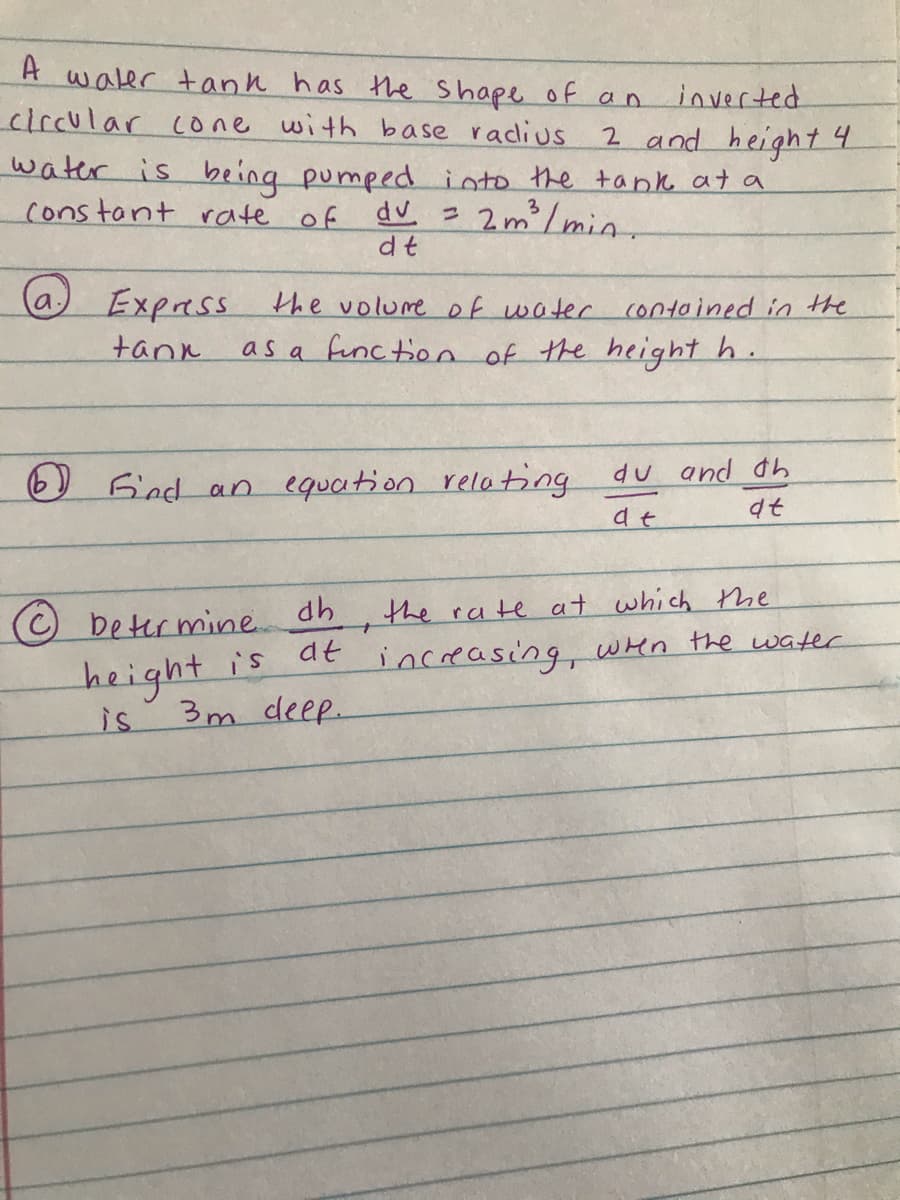 A water tank has the shape of an inverted
circular cone with base radius 2 and height 4
water is being pumped into the tank at a
constant rate of dv/dt = 2m³/min.
(a.) Express the volume of water contained in the
tank as a function of the height h.
(b) Find an equation relating dv/dt and dh/dt
(c) Determine dh/dt, the rate at which the
height is increasing, when the water
is 3m deep.